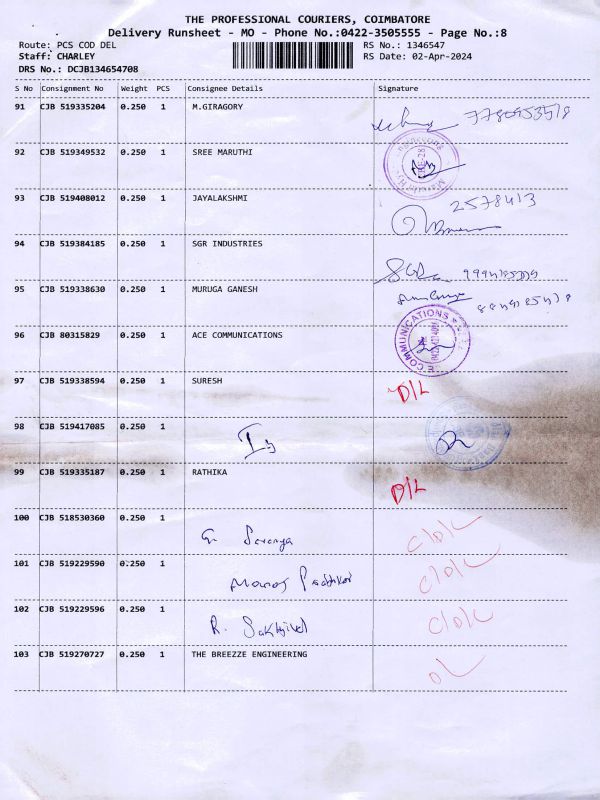 THE PROFESSIONAL COURIERS, COIMBATORE
Delivery Runsheet - MO - Phone No.:0422-3505555 - Page No.:8
Route: PCS COD DEL RS No.: 1346547
Staff: CHARLEY RS Date: 02-Apr-2024
DRS No.: DCJB134654708
S No Consignment No Weight PCS Consignee Details Signature
91 CJB 519335204 0.250 1 M.GIRAGORY
92 CJB 519349532 0.250 1 SREE MARUTHI
93 CJB 519408012 0.250 1 JAYALAKSHMI 2578413
94 CJB 519384185 0.250 1 SGR INDUSTRIES SGR
95 CJB 519338630 0.250 1 MURUGA GANESH
96 CJB 80315829 0.250 1 ACE COMMUNICATIONS COMMUNICATIONS
97 CJB 519338594 0.250 1 SURESH D/L
98 CJB 519417085 0.250 1
99 CJB 519335187 0.250 1 RATHIKA D/L
100 CJB 518530360 0.250 1 G. Saranya
101 CJB 519229590 0.250 1
102 CJB 519229596 0.250 1 R. Sakthivel
103 CJB 519270727 0.250 1 THE BREEZZE ENGINEERING